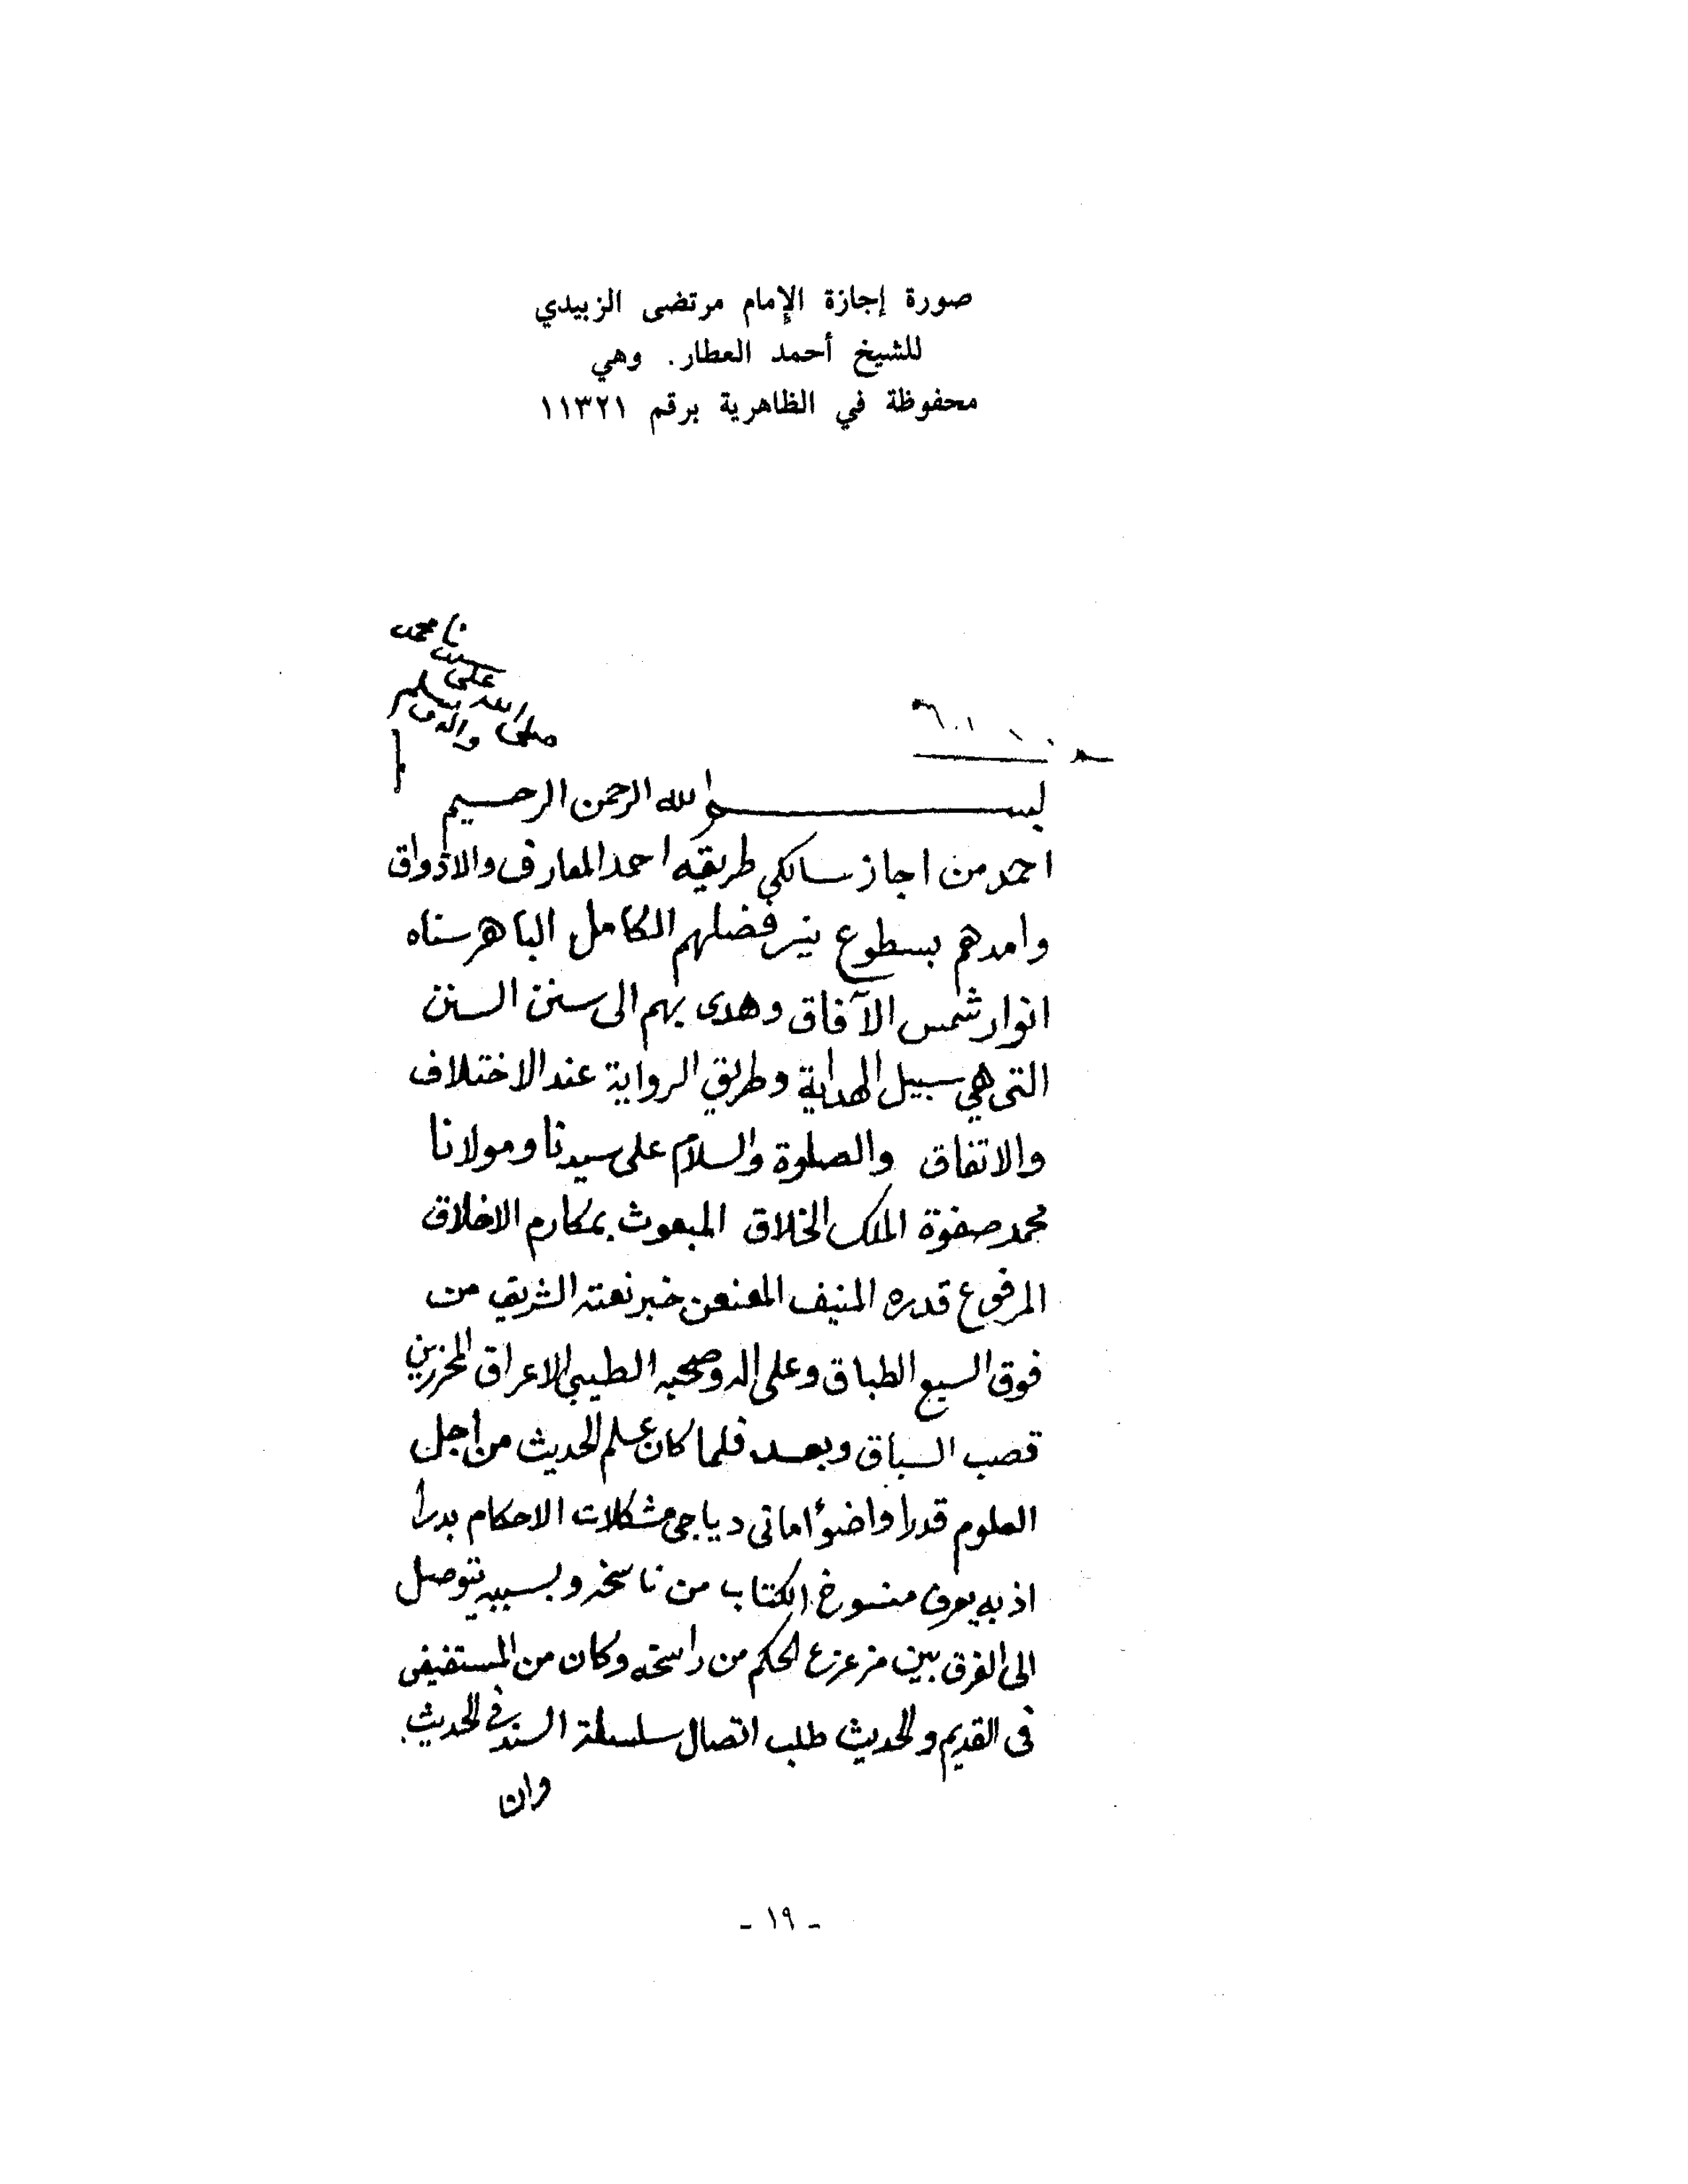 صورة إجازة الإمام مرتضى الزبيدي
للشيخ أحمد العطار. وهي
محفوظة في الظاهرية برقم ١١٣٢١
صلى الله على
سيدنا محمد
واله وسلم
بسم الله الرحمن الرحيم
احمد من اجاز سالكي طريقه احمد المعارف والاذواق
وامدهم بسطوع نير فضلهم الكامل الباهر سناه
انوار شمس الآفاق وهدى بهم الى سنن السنن
التى هي سبيل الهداية وطريق الرواية عند الاختلاف
والاتفاق والصلوة والسلام على سيدنا ومولانا
محمد صفوة الملك الخلاق المبعوث بمكارم الاخلاق
المرفوع قدره المنيف المعنعن خبر نعته الشريف من
فوق السبع الطباق وعلى اله وصحبه الطيبي الاعراق المحرزين
قصب السباق وبعد فلما كان علم الحديث من اجل
العلوم قدرا واضوأ ما فى دياجى مشكلات الاحكام بدرا
اذ به يعرف منسوخ الكتاب من ناسخه وبسببه يتوصل
الى الفرق بين مزعزع الحكم من راسخه وكان من المستفيض
فى القديم والحديث طلب اتصال سلسلة السند فى الحديث
وان
- ١٩ -